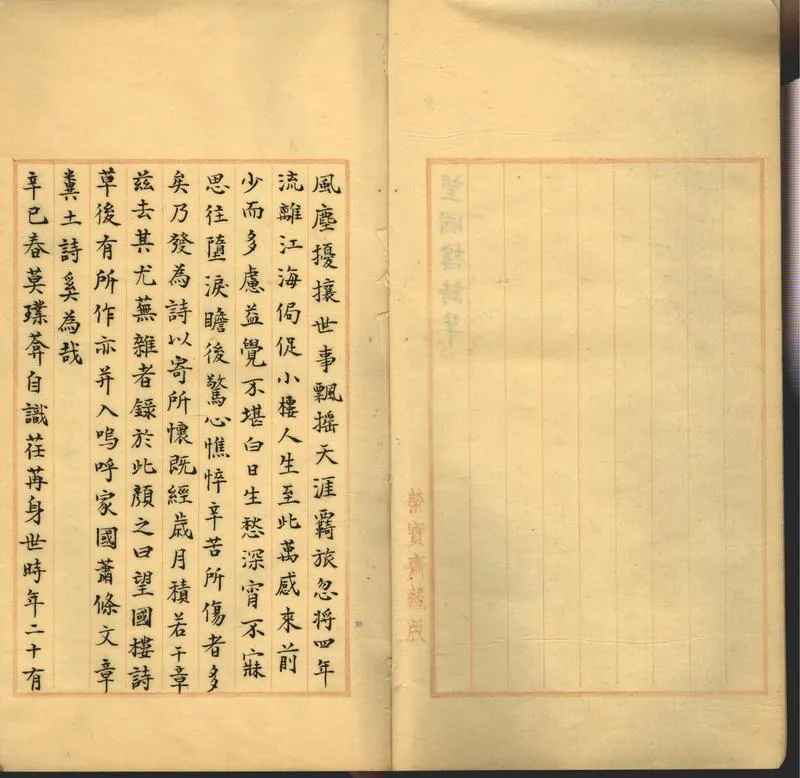 望國樓詩草
榮寶齋製用
風塵擾攘世事飄搖天涯羇旅忽將四年
流離江海侷促小樓人生至此萬感來前
少而多慮益覺不堪白日生愁深宵不寐
思往墮淚瞻後驚心憔悴辛苦所傷者多
矣乃發為詩以寄所懷既經歲月積若干章
茲去其尤蕪雜者錄於此顏之曰望國樓詩
草後有所作亦并入嗚呼家國蕭條文章
糞土詩奚為哉
辛巳春莫璞莽自識荏苒身世時年二十有